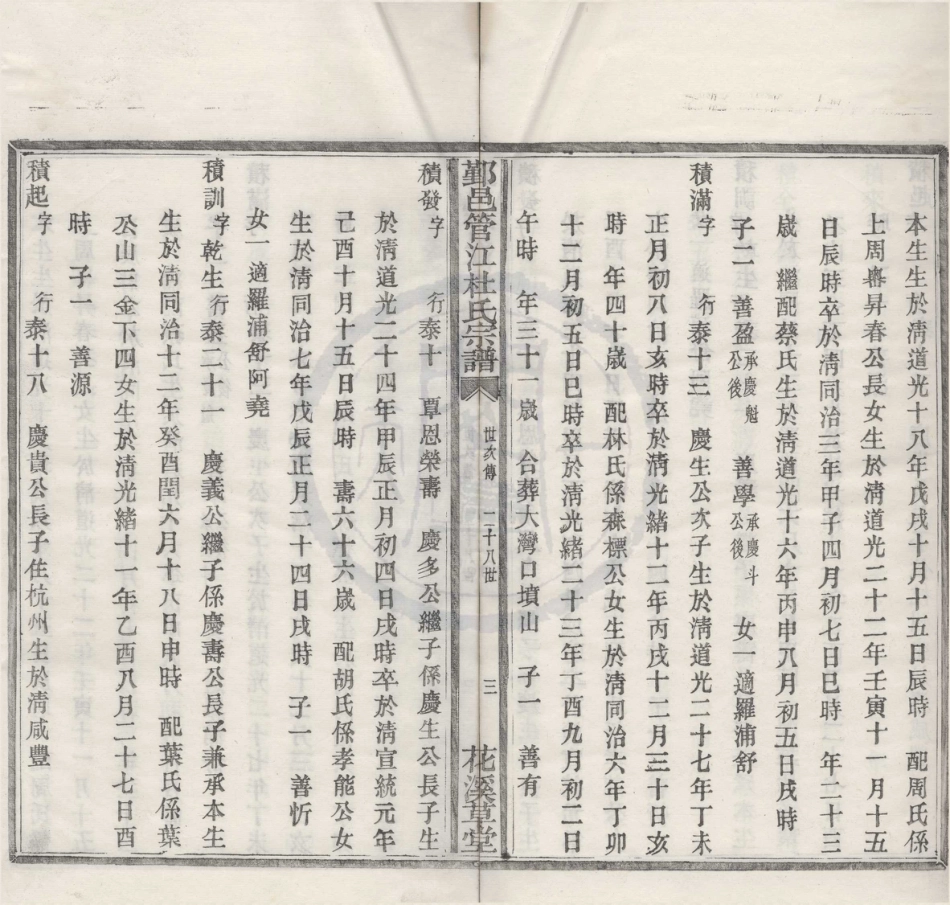 本生生於淸道光十八年戊戌十月十五日辰時 配周氏係
上周壽昇春公長女生於淸道光二十二年壬寅十一月十五
日辰時卒於淸同治三年甲子四月初七日巳時 年二十三
歲 繼配蔡氏生於淸道光十六年丙申八月初五日戌時
子二 善盈承慶魁公後 善學承慶斗公後 女一適羅浦舒
積滿字 行泰十三 慶生公次子生於淸道光二十七年丁未
正月初八日亥時卒於淸光緒十二年丙戌十二月三十日亥
時 年四十歲 配林氏係森標公女生於淸同治六年丁卯
十二月初五日巳時卒於淸光緒二十三年丁酉九月初二日
午時 年三十一歲 合葬大灣口墳山 子一 善有
鄞邑管江杜氏宗譜 世次傳 二十八世 三 花溪草堂
積發字 行泰十 覃恩榮壽 慶多公繼子係慶生公長子生
於淸道光二十四年甲辰正月初四日戌時卒於淸宣統元年
己酉十月十五日辰時 壽六十六歲 配胡氏係孝能公女
生於淸同治七年戊辰正月二十四日戌時 子一 善忻
女一適羅浦舒阿堯
積訓字乾生行泰二十一 慶義公繼子係慶壽公長子兼承本生
生於淸同治十二年癸酉閏六月十八日申時 配葉氏係葉
公山三金下四女生於淸光緒十一年乙酉八月二十七日酉
時 子一 善源
積起字 行泰十八 慶貴公長子住杭州生於淸咸豐